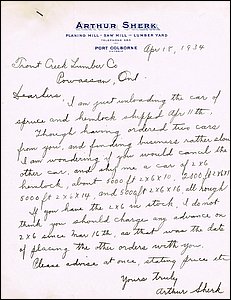 ARTHUR SHERK
PLANING MILL - SAW MILL - LUMBER YARD
PORT COLBORNE
Apr 18, 1934
Trout Creek Lumber Co
Powassan, Ont.
I am just unloading the car of
spruce and hemlock shipped Apr 11th,
Though having ordered two cars
from you, and finding business rather slow
I am wondering if you would cancel the
other car, and ship me a car of 2x6
hemlock, about 5000 ft 2x6x10,
5000 ft 2x6x14, and 5000 ft 2x6x16 all rough
If you have the 2x6 in stock, I do not
think you should charge any advance on
2x6 since Mar 16th, as that was the date
of placing the other orders with you.
Please advise at once, stating price etc
Yours truly
Arthur Sherk